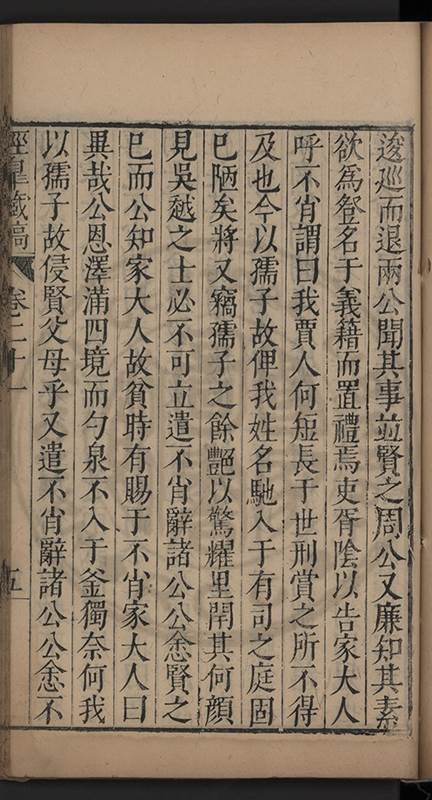 逡巡而退兩公聞其事並賢之周公又廉知其素
欲爲登名于義籍而置禮焉吏胥陰以告家大人
呼不肖謂曰我賈人何短長于世刑賞之所不得
及也今以孺子故俾我姓名馳入于有司之庭固
已陋矣將又竊孺子之餘艷以驚耀里閈其何顏
見吳越之士必不可立遣不肖辭諸公公恚賢之
已而公知家大人故貧時有賜于不肖家大人曰
異哉公恩澤滿四境而勺泉不入于釜獨奈何我
以孺子故侵賢父母乎又遣不肖辭諸公公恚不
經皐藏稿 卷二十一 五